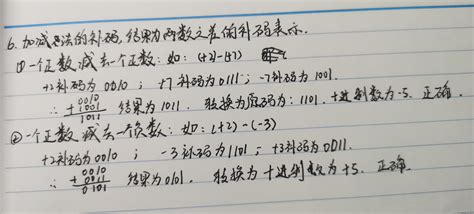 6. 加减法的补码,结果为两数之差的补码表示.
① 一个正数减去一个正数: 如: (+2)-(+7)
+2补码为0010 ; +7补码为0111 ; -7补码为1001.
∴ 0010
+ 1001
1011 结果为1011. 转换为原码为: 1101, 十进制数为-5. 正确.
② 一个正数减去一个负数: 如: (+2) - (-3)
+2补码为0010 ; -3补码为1101 ; +3补码为0011.
∴ 0010
+ 0011
0101 结果为0101. 转换为十进制数为+5. 正确.